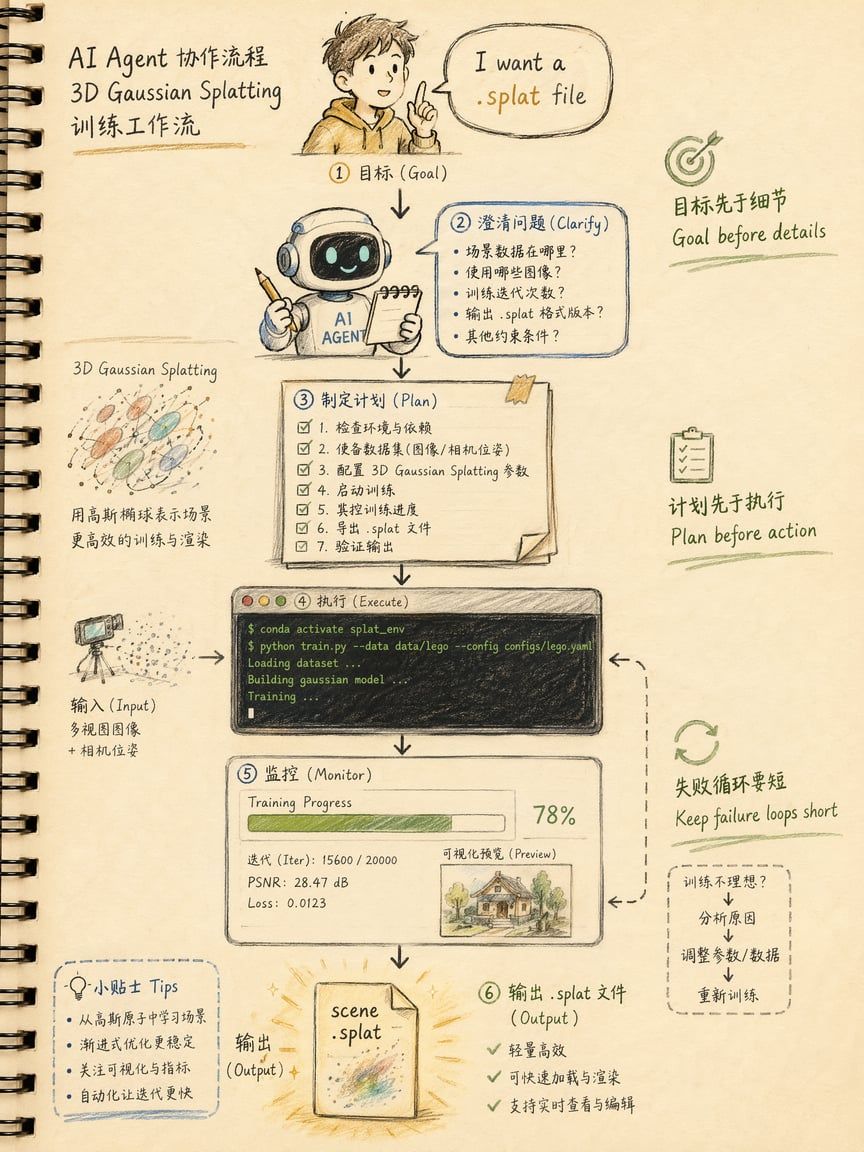 AI Agent 协作流程
3D Gaussian Splatting
训练工作流
I want a
.splat file
① 目标 (Goal)
目标先于细节
Goal before details
② 澄清问题 (Clarify)
• 场景数据在哪里?
• 使用哪些图像?
• 训练迭代次数?
• 输出 .splat 格式版本?
• 其他约束条件?
AI
AGENT
3D Gaussian Splatting
用高斯椭球表示场景
更高效的训练与渲染
③ 制定计划 (Plan)
1. 检查环境与依赖
2. 使备数据集(图像/相机位姿)
3. 配置 3D Gaussian Splatting 参数
4. 启动训练
5. 控训练进度
6. 导出 .splat 文件
7. 验证输出
计划先于执行
Plan before action
④ 执行 (Execute)
$ conda activate splat_env
$ python train.py --data data/lego --config configs/lego.yaml
Loading dataset ...
Building gaussian model ...
Training ...
输入 (Input)
多视图图像
+ 相机位姿
⑤ 监控 (Monitor)
Training Progress
78%
迭代 (Iter): 15600 / 20000
PSNR: 28.47 dB
Loss: 0.0123
可视化预览 (Preview)
失败循环要短
Keep failure loops short
训练不理想?
分析原因
调整参数/数据
重新训练
小贴士 Tips
• 从高斯原子中学习场景
• 渐进式优化更稳定
• 关注可视化与指标
• 自动化让迭代更快
输出
(Output)
scene
.splat
⑥ 输出 .splat 文件
(Output)
轻量高效
可快速加载与渲染
支持实时查看与编辑